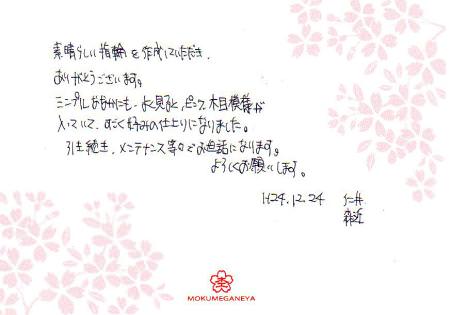 素晴らしい指輪を作成していただき、
ありがとうございます。
シンプルなながにも、よく見ると、ピンク木目模様が
入っていて、すごく好みの仕上りになりました。
引き続き、メンテナンス等々でお世話になります。
よろしくお願いします。
H24.12.24
MOKUMEGANEYA